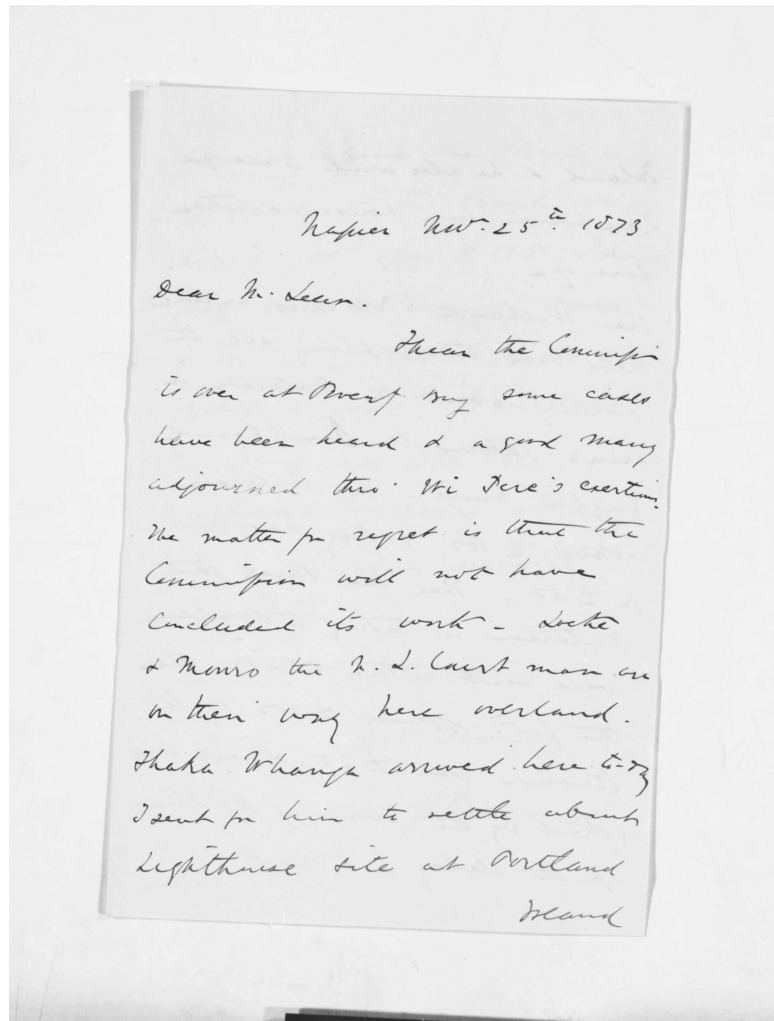 Napier Nov. 25th. 1873.
Dear Mr. Lean.
I hear the Commission
is over at Poverty Bay some cases
have been heard & a good many
adjourned thro' Wi Pere's exertions.
The matter for regret is that the
Commission will not have
concluded its work - Locke
& Monro the N. L. Court man are
on their way here overland.
Ihaka Whanga arrived here to-day
I sent for him to settle about
Lighthouse site at Portland
Island